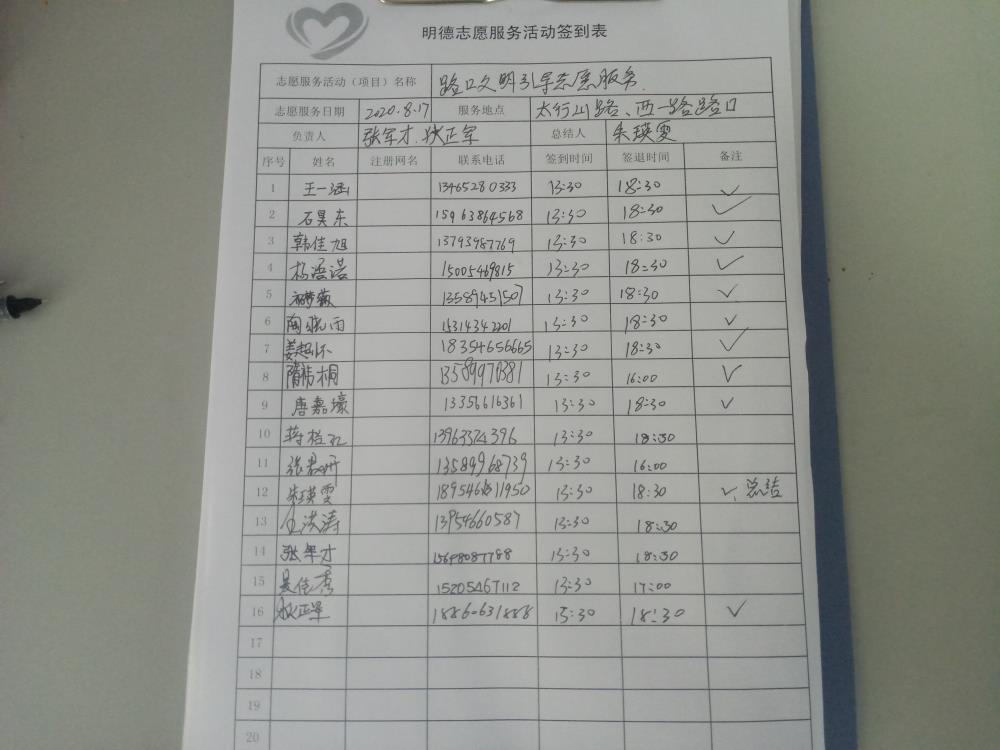 明德志愿服务活动签到表
志愿服务活动（项目）名称 路口文明引导志愿服务
志愿服务日期 2020.8.17 服务地点 太行山路、西一路路口
负责人 张军才.狄正军 总结人 朱瑛雯
序号 姓名 注册网名 联系电话 签到时间 签退时间 备注
1 王一涵 13465280333 13:30 18:30 ✓
2 石昊东 15963864568 13:30 18:30 ✓
3 韩佳旭 13793987769 13:30 18:30 ✓
4 杨语诺 15005469815 13:30 18:30 ✓
5 13589451507 13:30 18:30 ✓
6 陶晓雨 15314342201 13:30 18:30 ✓
7 18354656665 13:30 18:30 ✓
8 隋梓桐 13589970381 13:30 16:00 ✓
9 唐嘉壕 13356616361 13:30 18:30 ✓
10 13963374396 13:30 18:30
11 13589968739 13:30 16:00
12 朱瑛雯 13:30 18:30 ✓ 总结
13 洪涛 13954660587 13:30 18:30
14 张军才 13:30 18:30
15 吴佳秀 15205467112 13:30 17:00
16 狄正军 18860631888 13:30 18:30 ✓
17
18
19
20